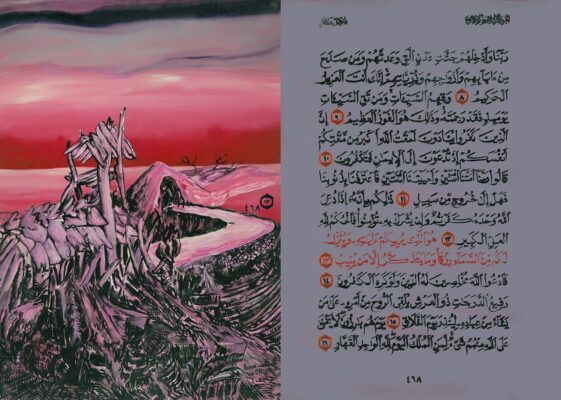 رَبَّنَا وَأَدْخِلْهُمْ جَنَّٰتِ عَدْنٍ الَّتِي وَعَدتَّهُمْ وَمَن صَلَحَ
مِنْ ءَابَآئِهِمْ وَأَزْوَٰجِهِمْ وَذُرِّيَّٰتِهِمْ إِنَّكَ أَنتَ الْعَزِيزُ
الْحَكِيمُ ٨ وَقِهِمُ السَّيِّـَٔاتِ وَمَن تَقِ السَّيِّـَٔاتِ
يَوْمَئِذٍ فَقَدْ رَحِمْتَهُ وَذَٰلِكَ هُوَ الْفَوْزُ الْعَظِيمُ ٩ إِنَّ
الَّذِينَ كَفَرُوا يُنَادَوْنَ لَمَقْتُ اللَّهِ أَكْبَرُ مِن مَّقْتِكُمْ
أَنفُسَكُمْ إِذْ تُدْعَوْنَ إِلَى الْإِيمَٰنِ فَتَكْفُرُونَ ١٠
قَالُوا رَبَّنَا أَمَتَّنَا اثْنَتَيْنِ وَأَحْيَيْتَنَا اثْنَتَيْنِ فَاعْتَرَفْنَا بِذُنُوبِنَا
فَهَلْ إِلَىٰ خُرُوجٍ مِّن سَبِيلٍ ١١ ذَٰلِكُم بِأَنَّهُ إِذَا دُعِيَ
اللَّهُ وَحْدَهُ كَفَرْتُمْ وَإِن يُشْرَكْ بِهِ تُؤْمِنُوا فَالْحُكْمُ لِلَّهِ
الْعَلِيِّ الْكَبِيرِ ١٢ هُوَ الَّذِي يُرِيكُمْ ءَايَٰتِهِ وَيُنَزِّلُ
لَكُم مِّنَ السَّمَآءِ رِزْقًا وَمَا يَتَذَكَّرُ إِلَّا مَن يُنِيبُ ١٣
فَادْعُوا اللَّهَ مُخْلِصِينَ لَهُ الدِّينَ وَلَوْ كَرِهَ الْكَٰفِرُونَ ١٤
رَفِيعُ الدَّرَجَٰتِ ذُو الْعَرْشِ يُلْقِي الرُّوحَ مِنْ أَمْرِهِ عَلَىٰ مَن
يَشَآءُ مِنْ عِبَادِهِ لِيُنذِرَ يَوْمَ التَّلَاقِ ١٥ يَوْمَ هُم بَٰرِزُونَ لَا يَخْفَىٰ
عَلَى اللَّهِ مِنْهُمْ شَيْءٌ لِّمَنِ الْمُلْكُ الْيَوْمَ لِلَّهِ الْوَٰحِدِ الْقَهَّارِ ١٦
٤٦٨
١٣
٤٦٨